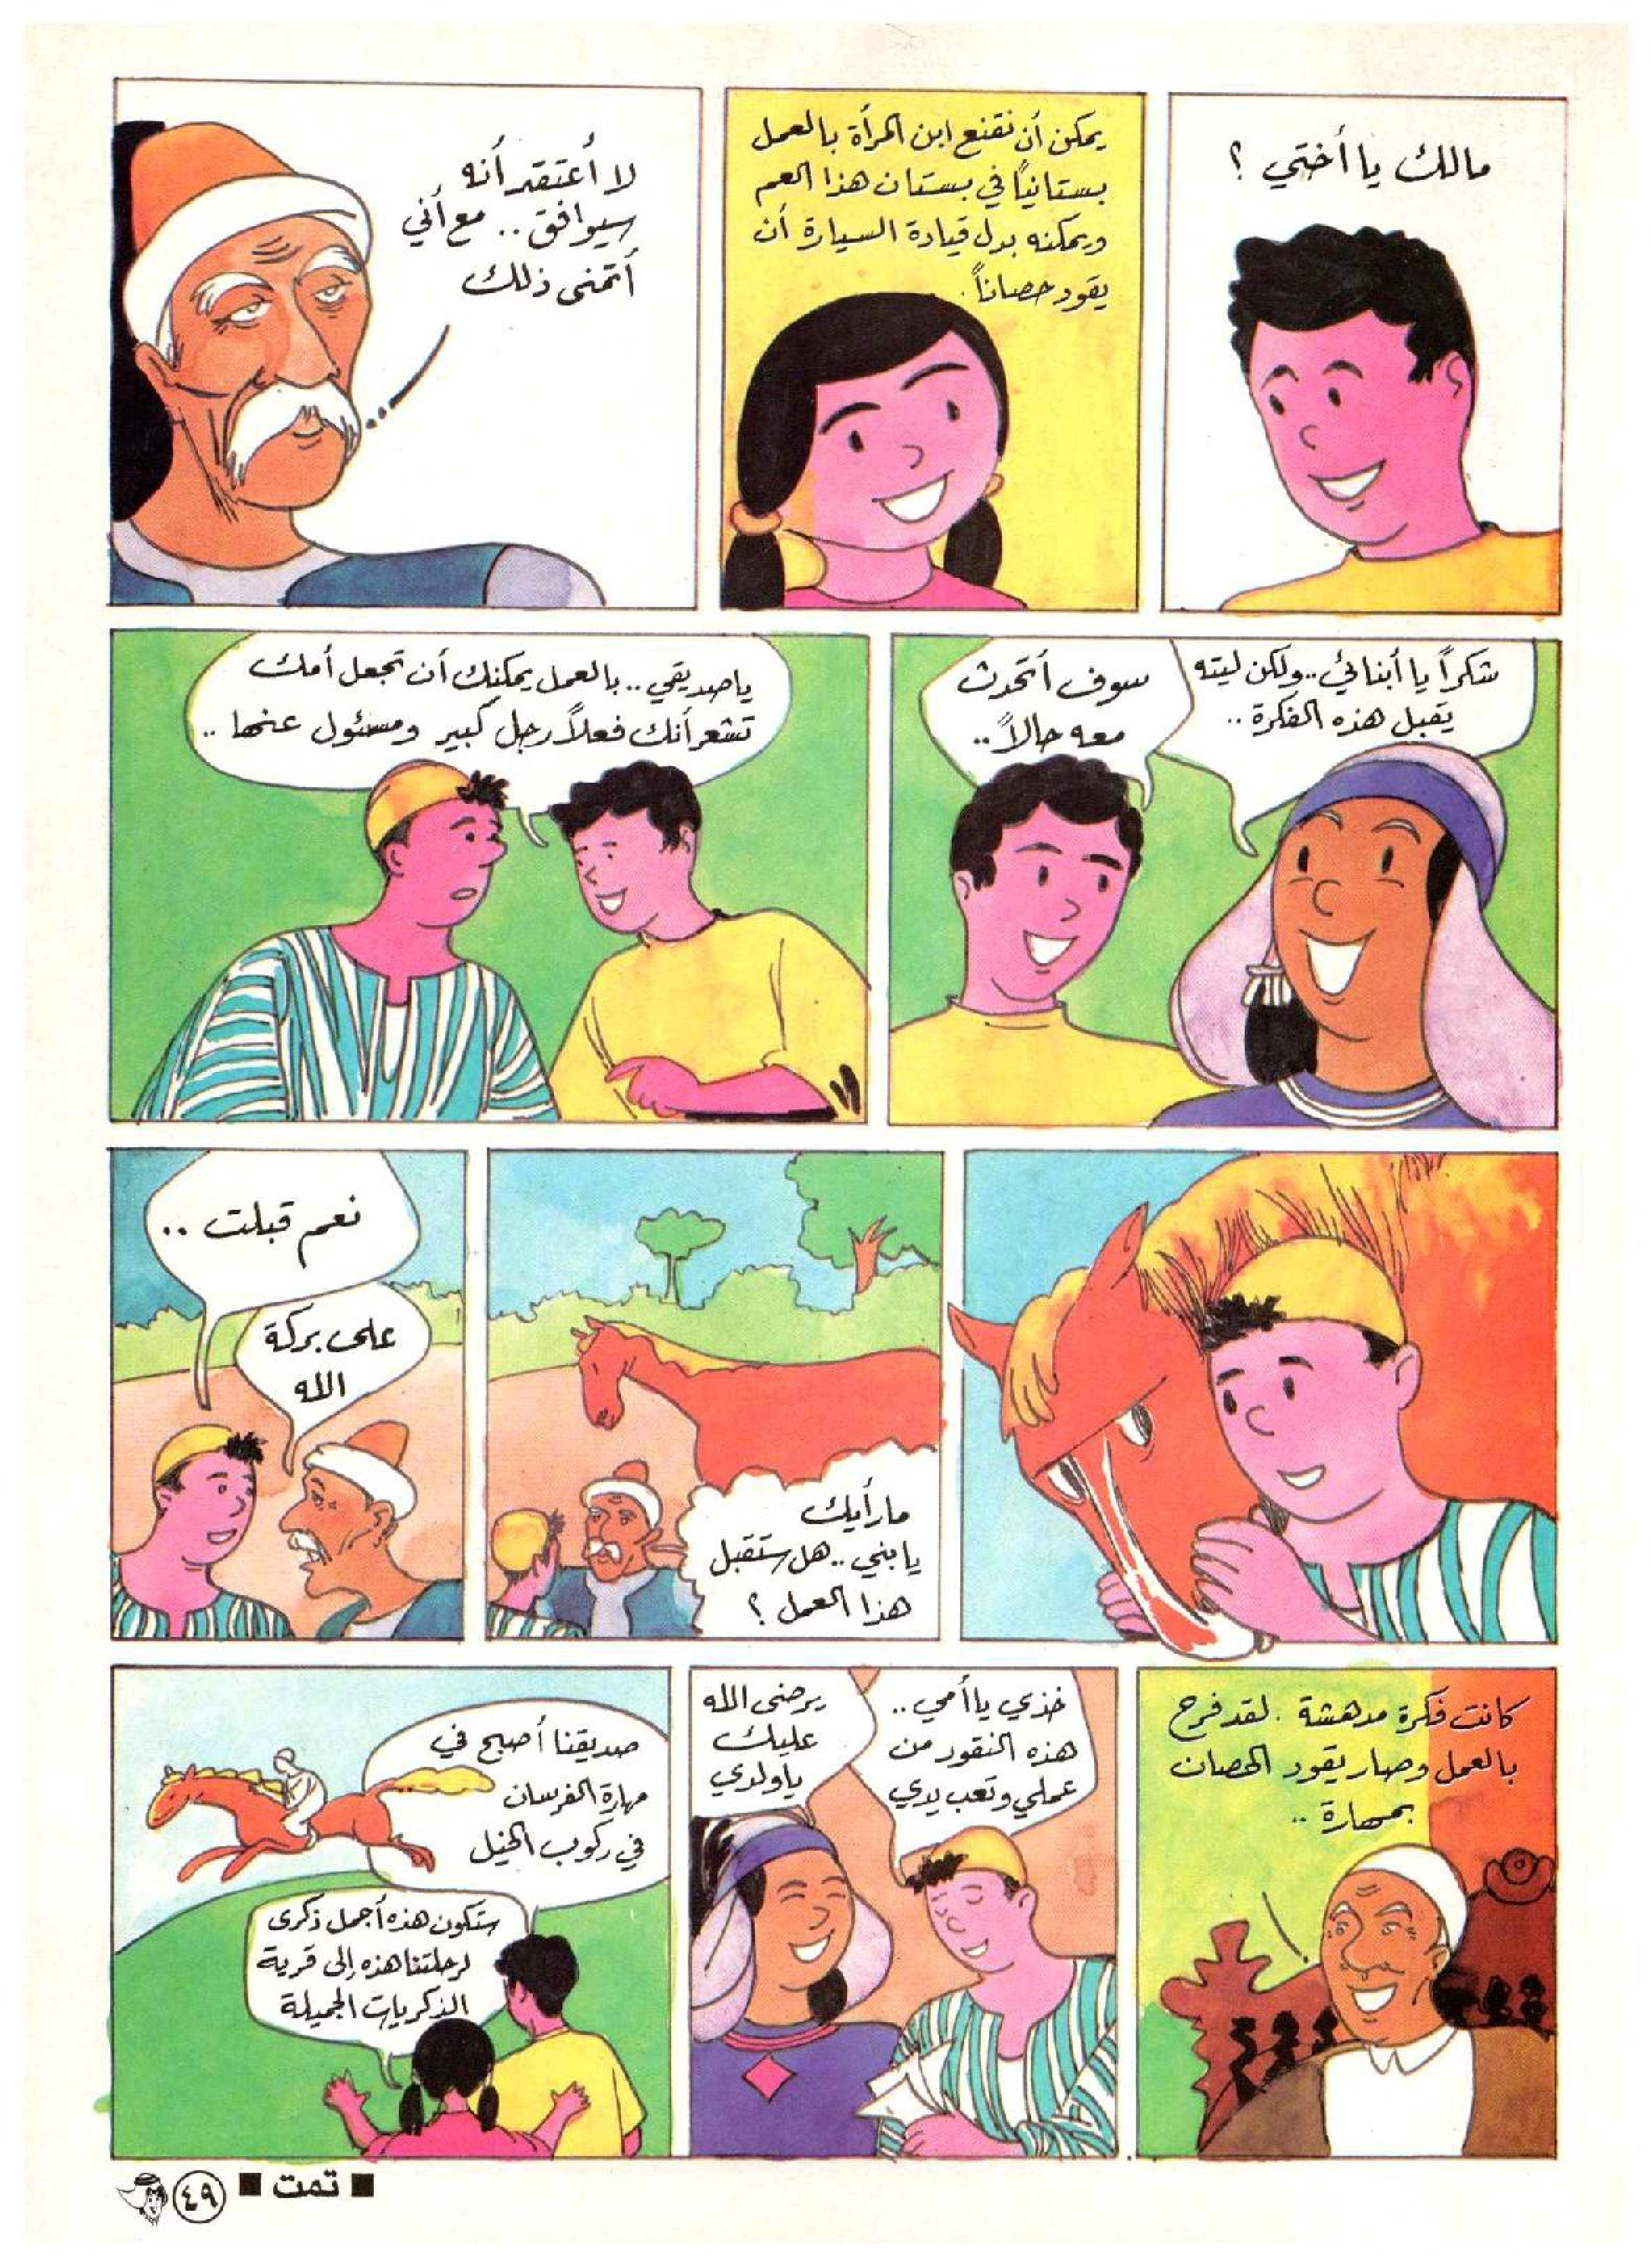 مالك يا أختي ؟
يمكن أن نقنع ابن المرأة بالعمل
بستانياً في بستان هذا العم
ويمكنه بدل قيادة السيارة أن
يقود حصاناً .
لا أعتقد أنه
سيوافق .. مع أني
أتمنى ذلك
شكراً يا أبنائي .. ولكن ليته
يقبل هذه الفكرة ..
سوف أتحدث
معه حالاً ..
يا صديقي .. بالعمل يمكنك أن تجعل أمك
تشعر أنك فعلاً رجل كبير ومسئول عنها ..
ما رأيك
يا بني .. هل ستقبل
هذا العمل ؟
نعم قبلت ..
على بركة
الله
كانت فكرة مدهشة . لقد فرح
بالعمل وصار يقود الحصان
بمهارة ..
خذي يا أمي ..
هذه النقود من
عملي وتعب يدي
يرضى الله
عليك
يا ولدي
صديقنا أصبح في
مهارة الفرسان
في ركوب الخيل
ستكون هذه أجمل ذكرى
لرحلتنا هذه إلى قرية
الذكريات الجميلة
■ تمت ■
٤٩